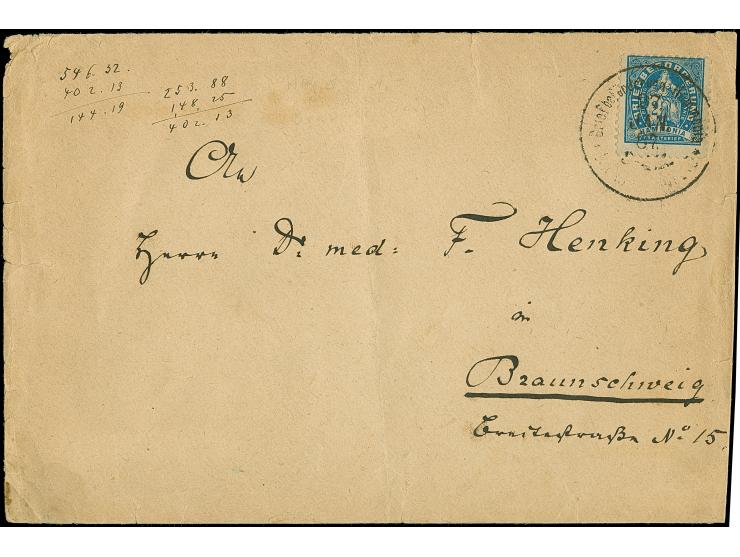 546. 32.
402. 13
144. 19
253. 88
148. 25
402. 13
HAMMONIA
An
Herrn Dr. med: F. Henking
in
Braunschweig
Breitestraße No 15.